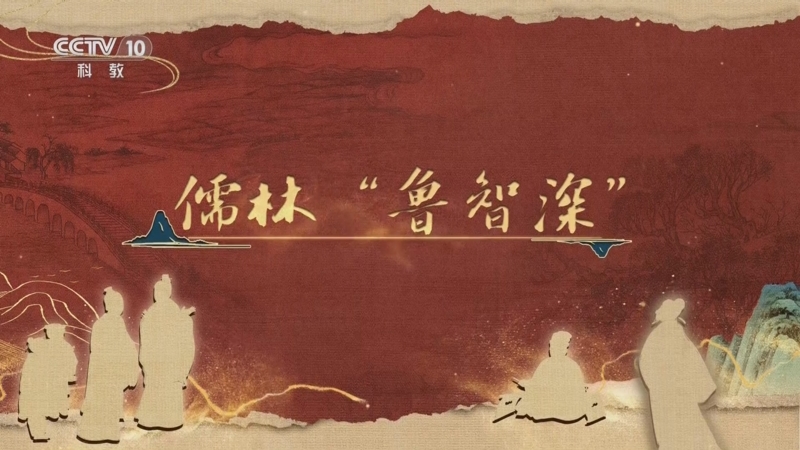 CCTV 10
科教
儒林“鲁智深”